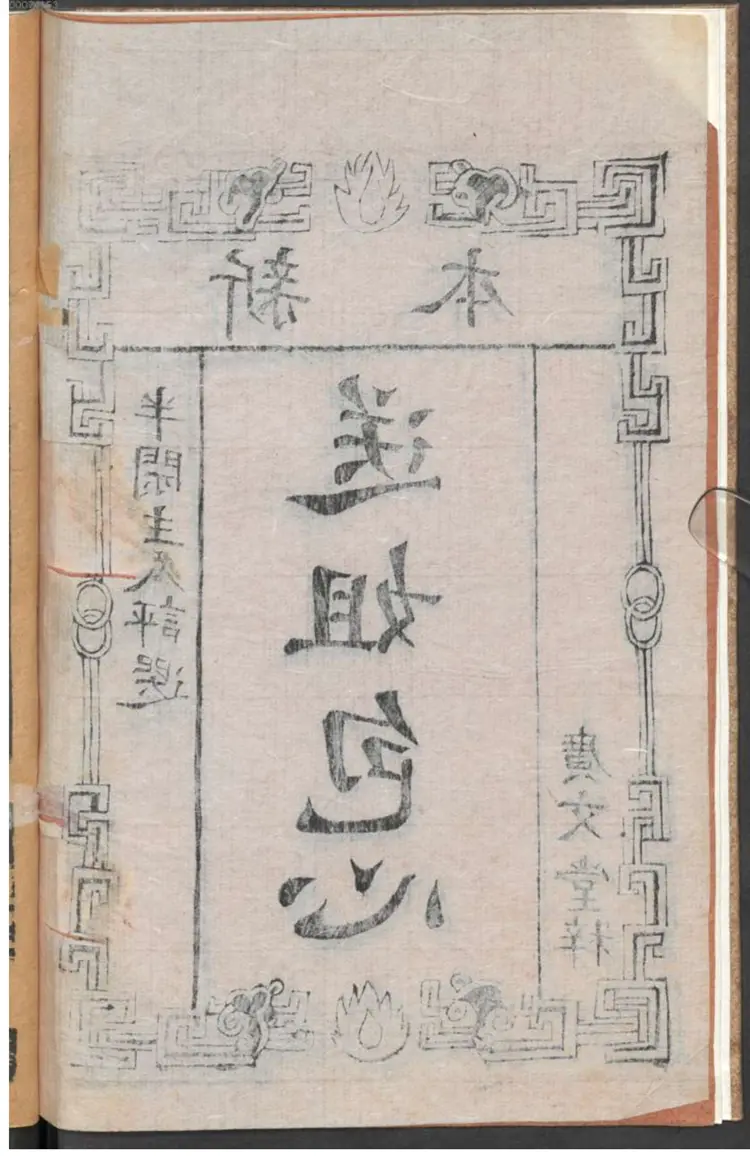 新本
半閑主人評選
送姐包心
廣文堂梓